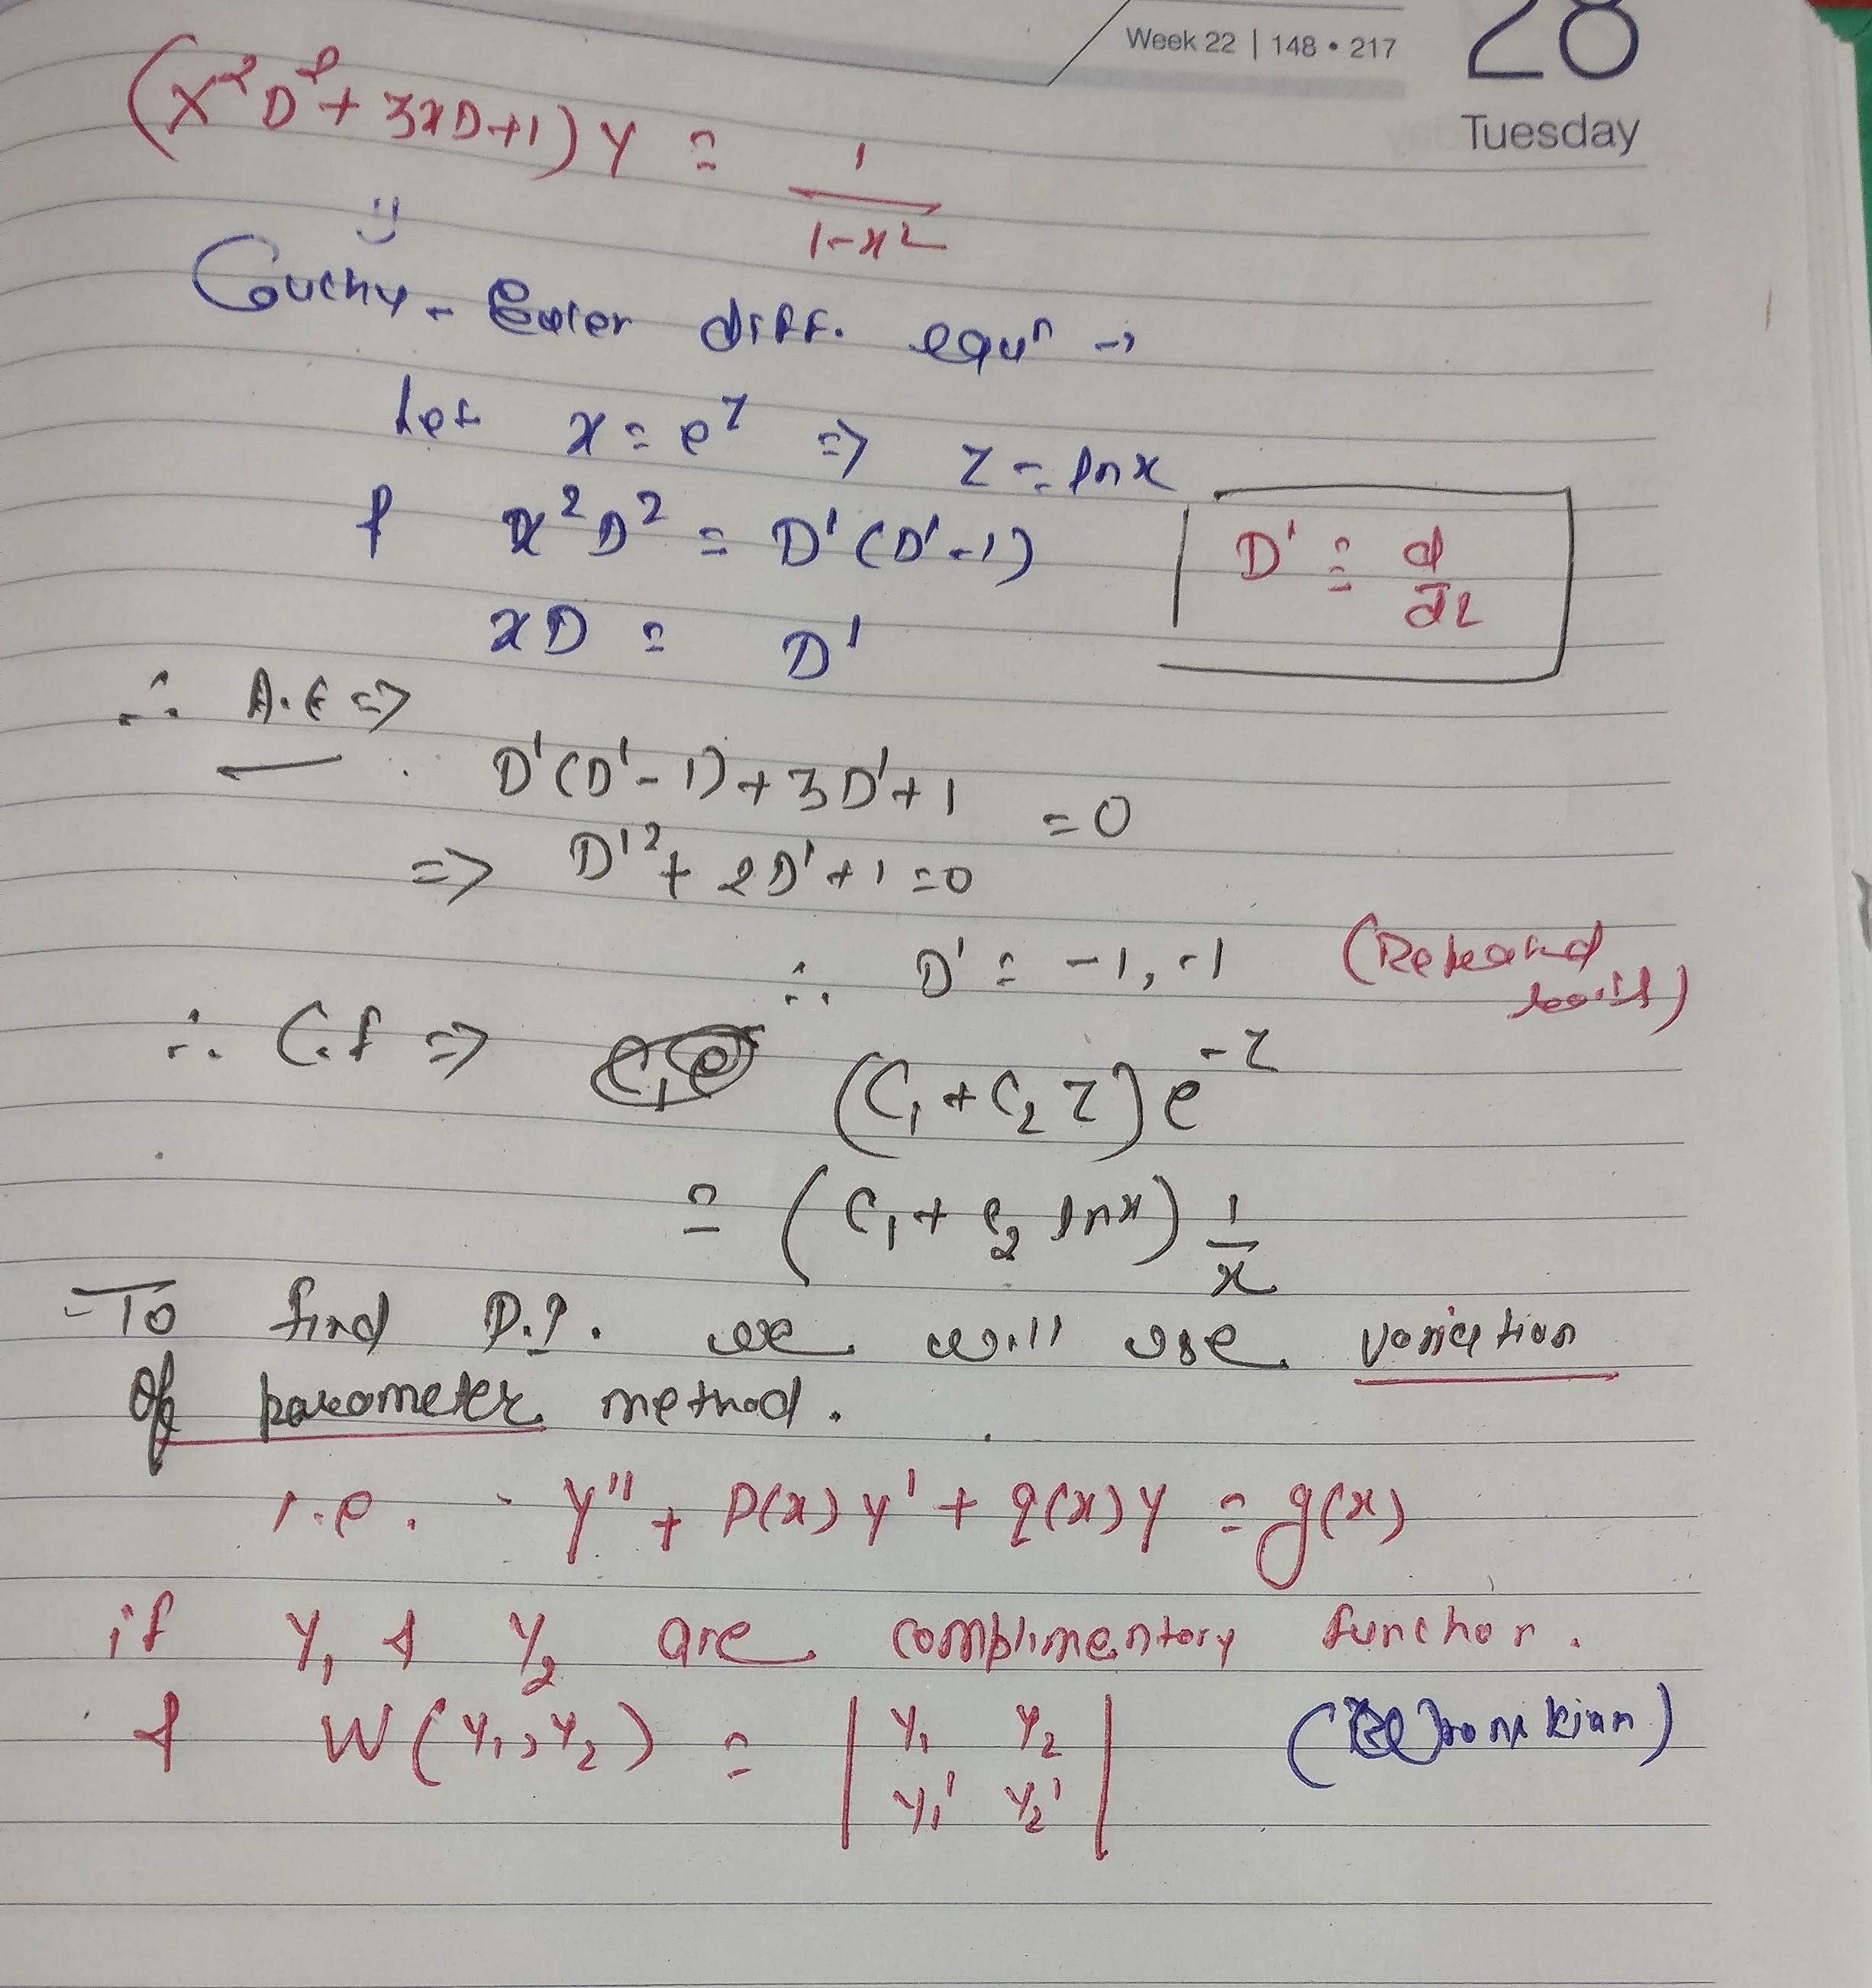 Week 22 | 148 • 217
28
Tuesday
(x²D² + 3xD+1) y = 1/(1-x²)
Cauchy - Euler diff. equⁿ →
Let x = e^z => z = ln x
& x²D² = D'(D'-1)
D' ≡ d/dz
xD = D'
∴ A.E =>
D'(D'-1) + 3D' + 1 = 0
=> D'² + 2D' + 1 = 0
∴ D' = -1, -1 (Repeated roots)
∴ C.f => (C₁ + C₂ z) e^-z
= (C₁ + C₂ ln x) 1/x
To find P.I. we will use variation
of parameter method.
i.e. y'' + p(x) y' + q(x) y = g(x)
if y₁ & y₂ are complimentory function.
& W(y₁, y₂) = | y₁ y₂ |
| y₁' y₂' |